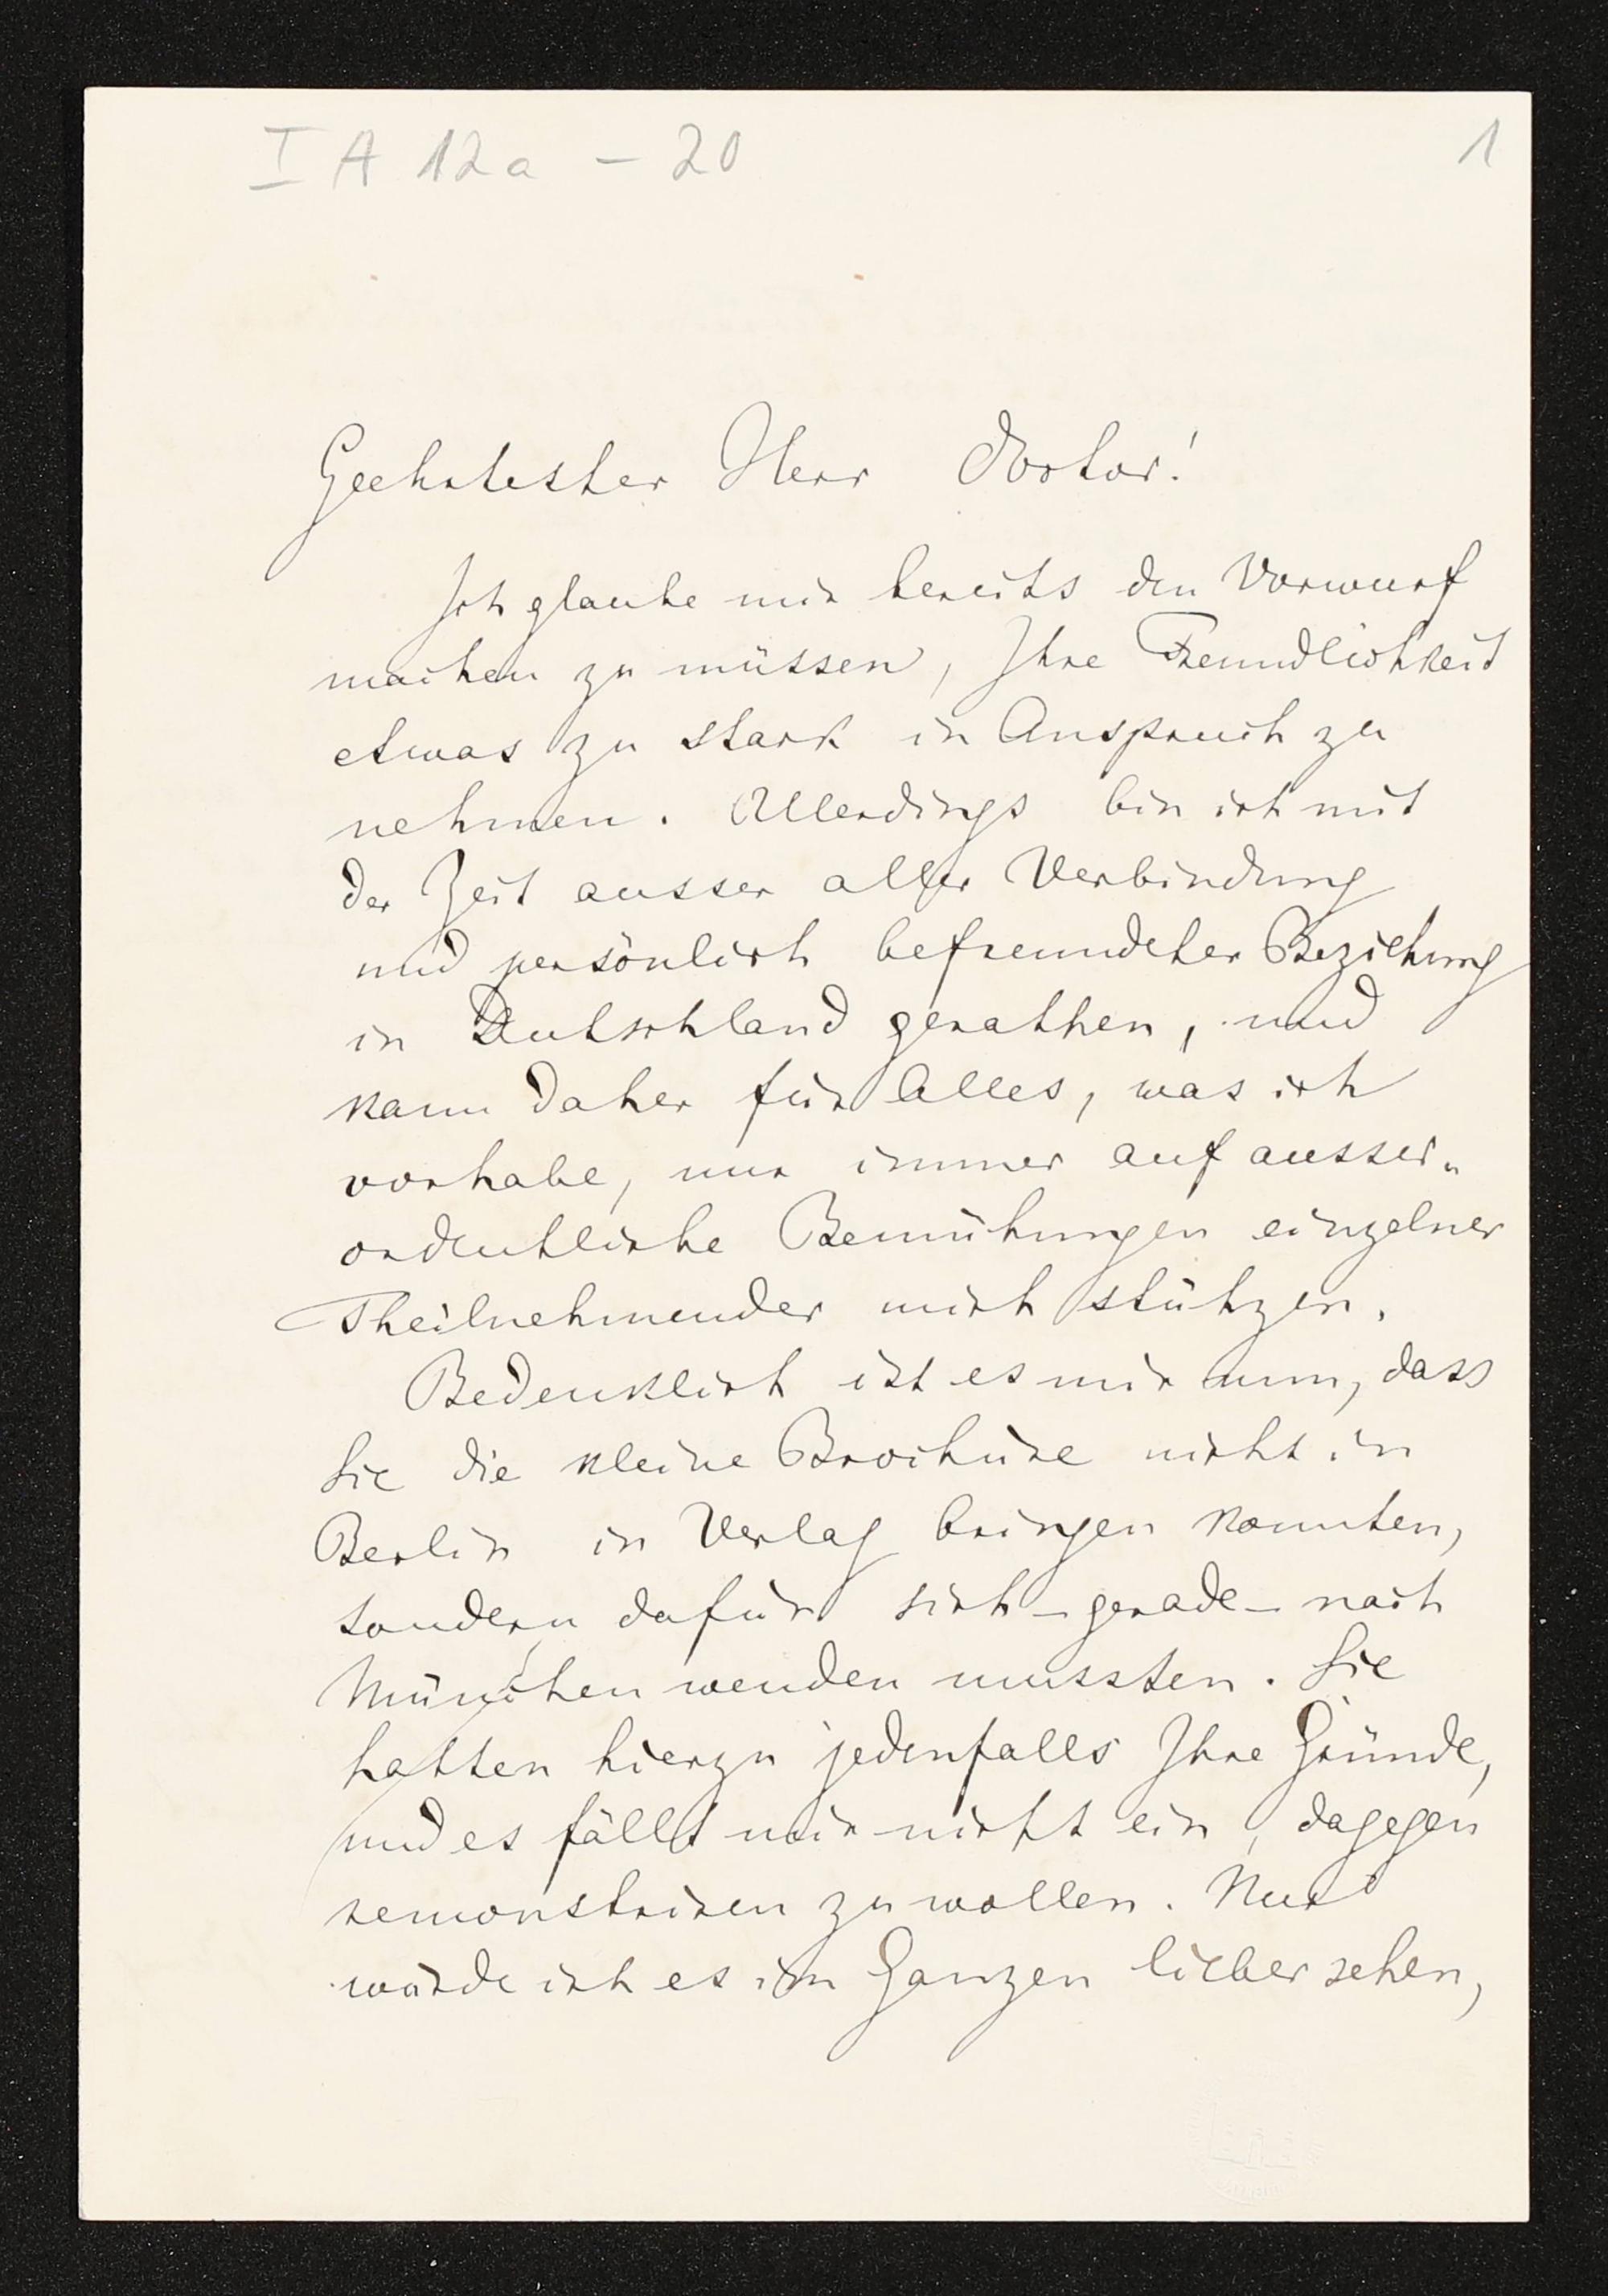 I A 12a – 20
1
Geehrtester Herr Doctor!
Ich glaube mir bereits den Vorwurf
machen zu müssen, Ihre Freundlichkeit
etwas zu stark in Anspruch zu
nehmen. Allerdings bin ich mit
der Zeit ausser aller Verbindung
und persönlich befreundeter Beziehung
in Deutschland gerathen, und
kann daher für Alles, was ich
vorhabe, nur immer auf ausser„
ordentliche Bemühungen einzelner
Theilnehmender mich stützen.
Bedenklich ist es mir nun, dass
Sie die kleine Brochüre nicht in
Berlin in Verlag bringen konnten,
sondern dafür sich – gerade – nach
München wenden mussten. Sie
hatten hierzu jedenfalls Ihre Gründe,
und es fällt mir nicht ein, dagegen
remonstriren zu wollen. Nur
würde ich es im Ganzen lieber sehen,